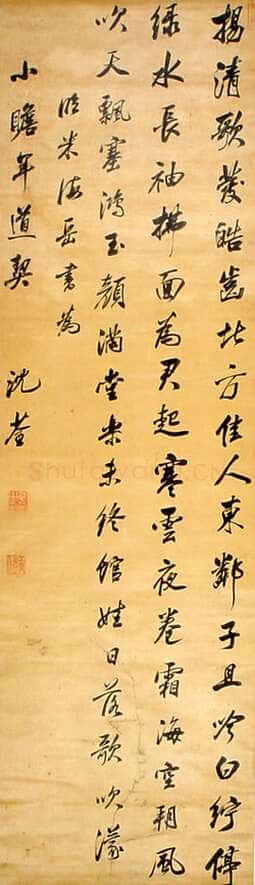 揚清歌發皓齒北方佳人東鄰子且吟白紵停
綠水長袖拂面為君起寒雲夜卷霜海空朔風
吹天飄塞鴻玉顏滿堂樂未終館娃日落歌吹濛
臨米海岳書為
小瞻年道契 沈荃